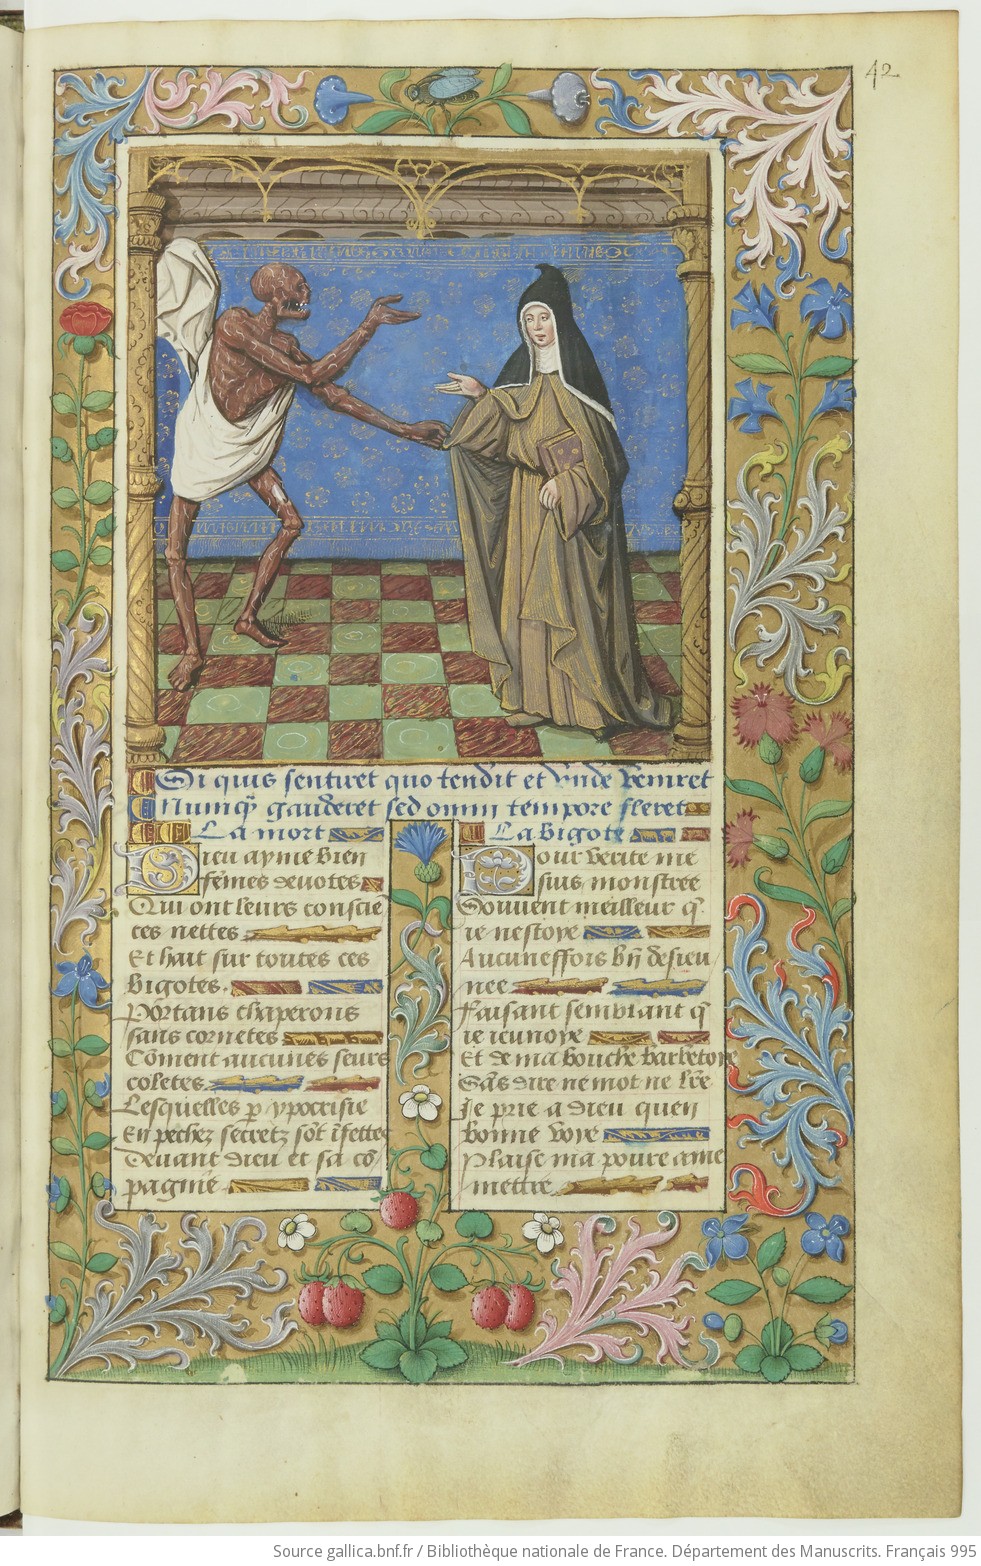 42
Si quis sentiret quo tendit et vnde veniret
Nunq̃ gauderet sed omni tempore fleret
La mort
Dieu ayme bien
fẽmes deuotes
Qui ont leurs consciẽ
ces nettes
Et hait sur toutes ces
bigotes
Portans chaperons
sans cornetes
Cõment aucunes seurs
coletes
Lesquelles p ypocrisie
En pechez secretz sõt ĩfettes
Deuant dieu et sa cõ
pagnie
La bigote
Pour verite me
suis monstree
Souuent meilleur q̃
ie nestoye
Aucuneffois bñ desieu
nee
Faisant semblant q̃
ie ieunoye
Et de ma bouche barbetoye
Sãs dire ne mot ne lr̃e
Je prie a dieu quen
bonne voye
Plaise ma poure ame
mettre
Source gallica.bnf.fr / Bibliothèque nationale de France. Département des Manuscrits. Français 995